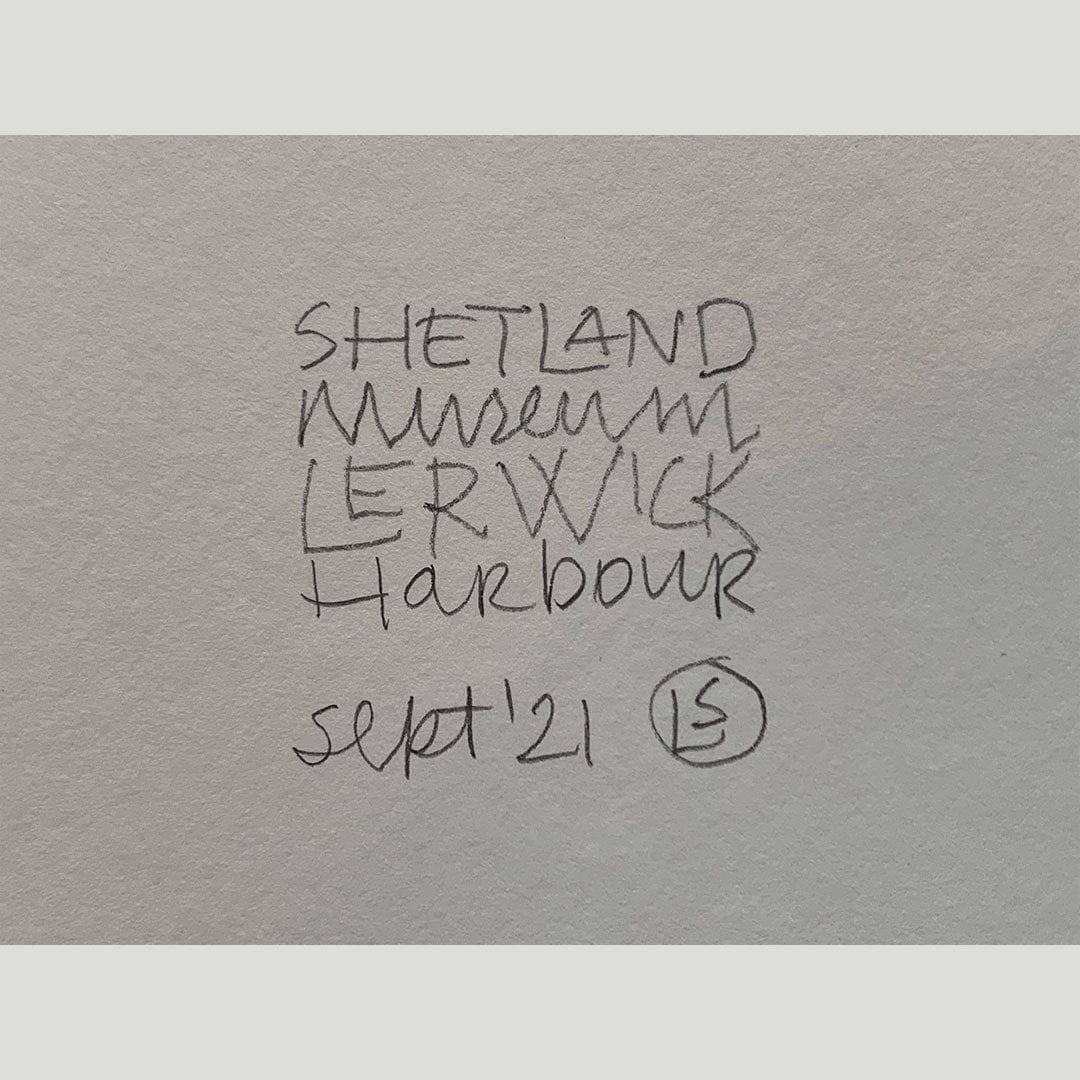 SHETLAND
museum
LERWICK
Harbour
sept '21 LS